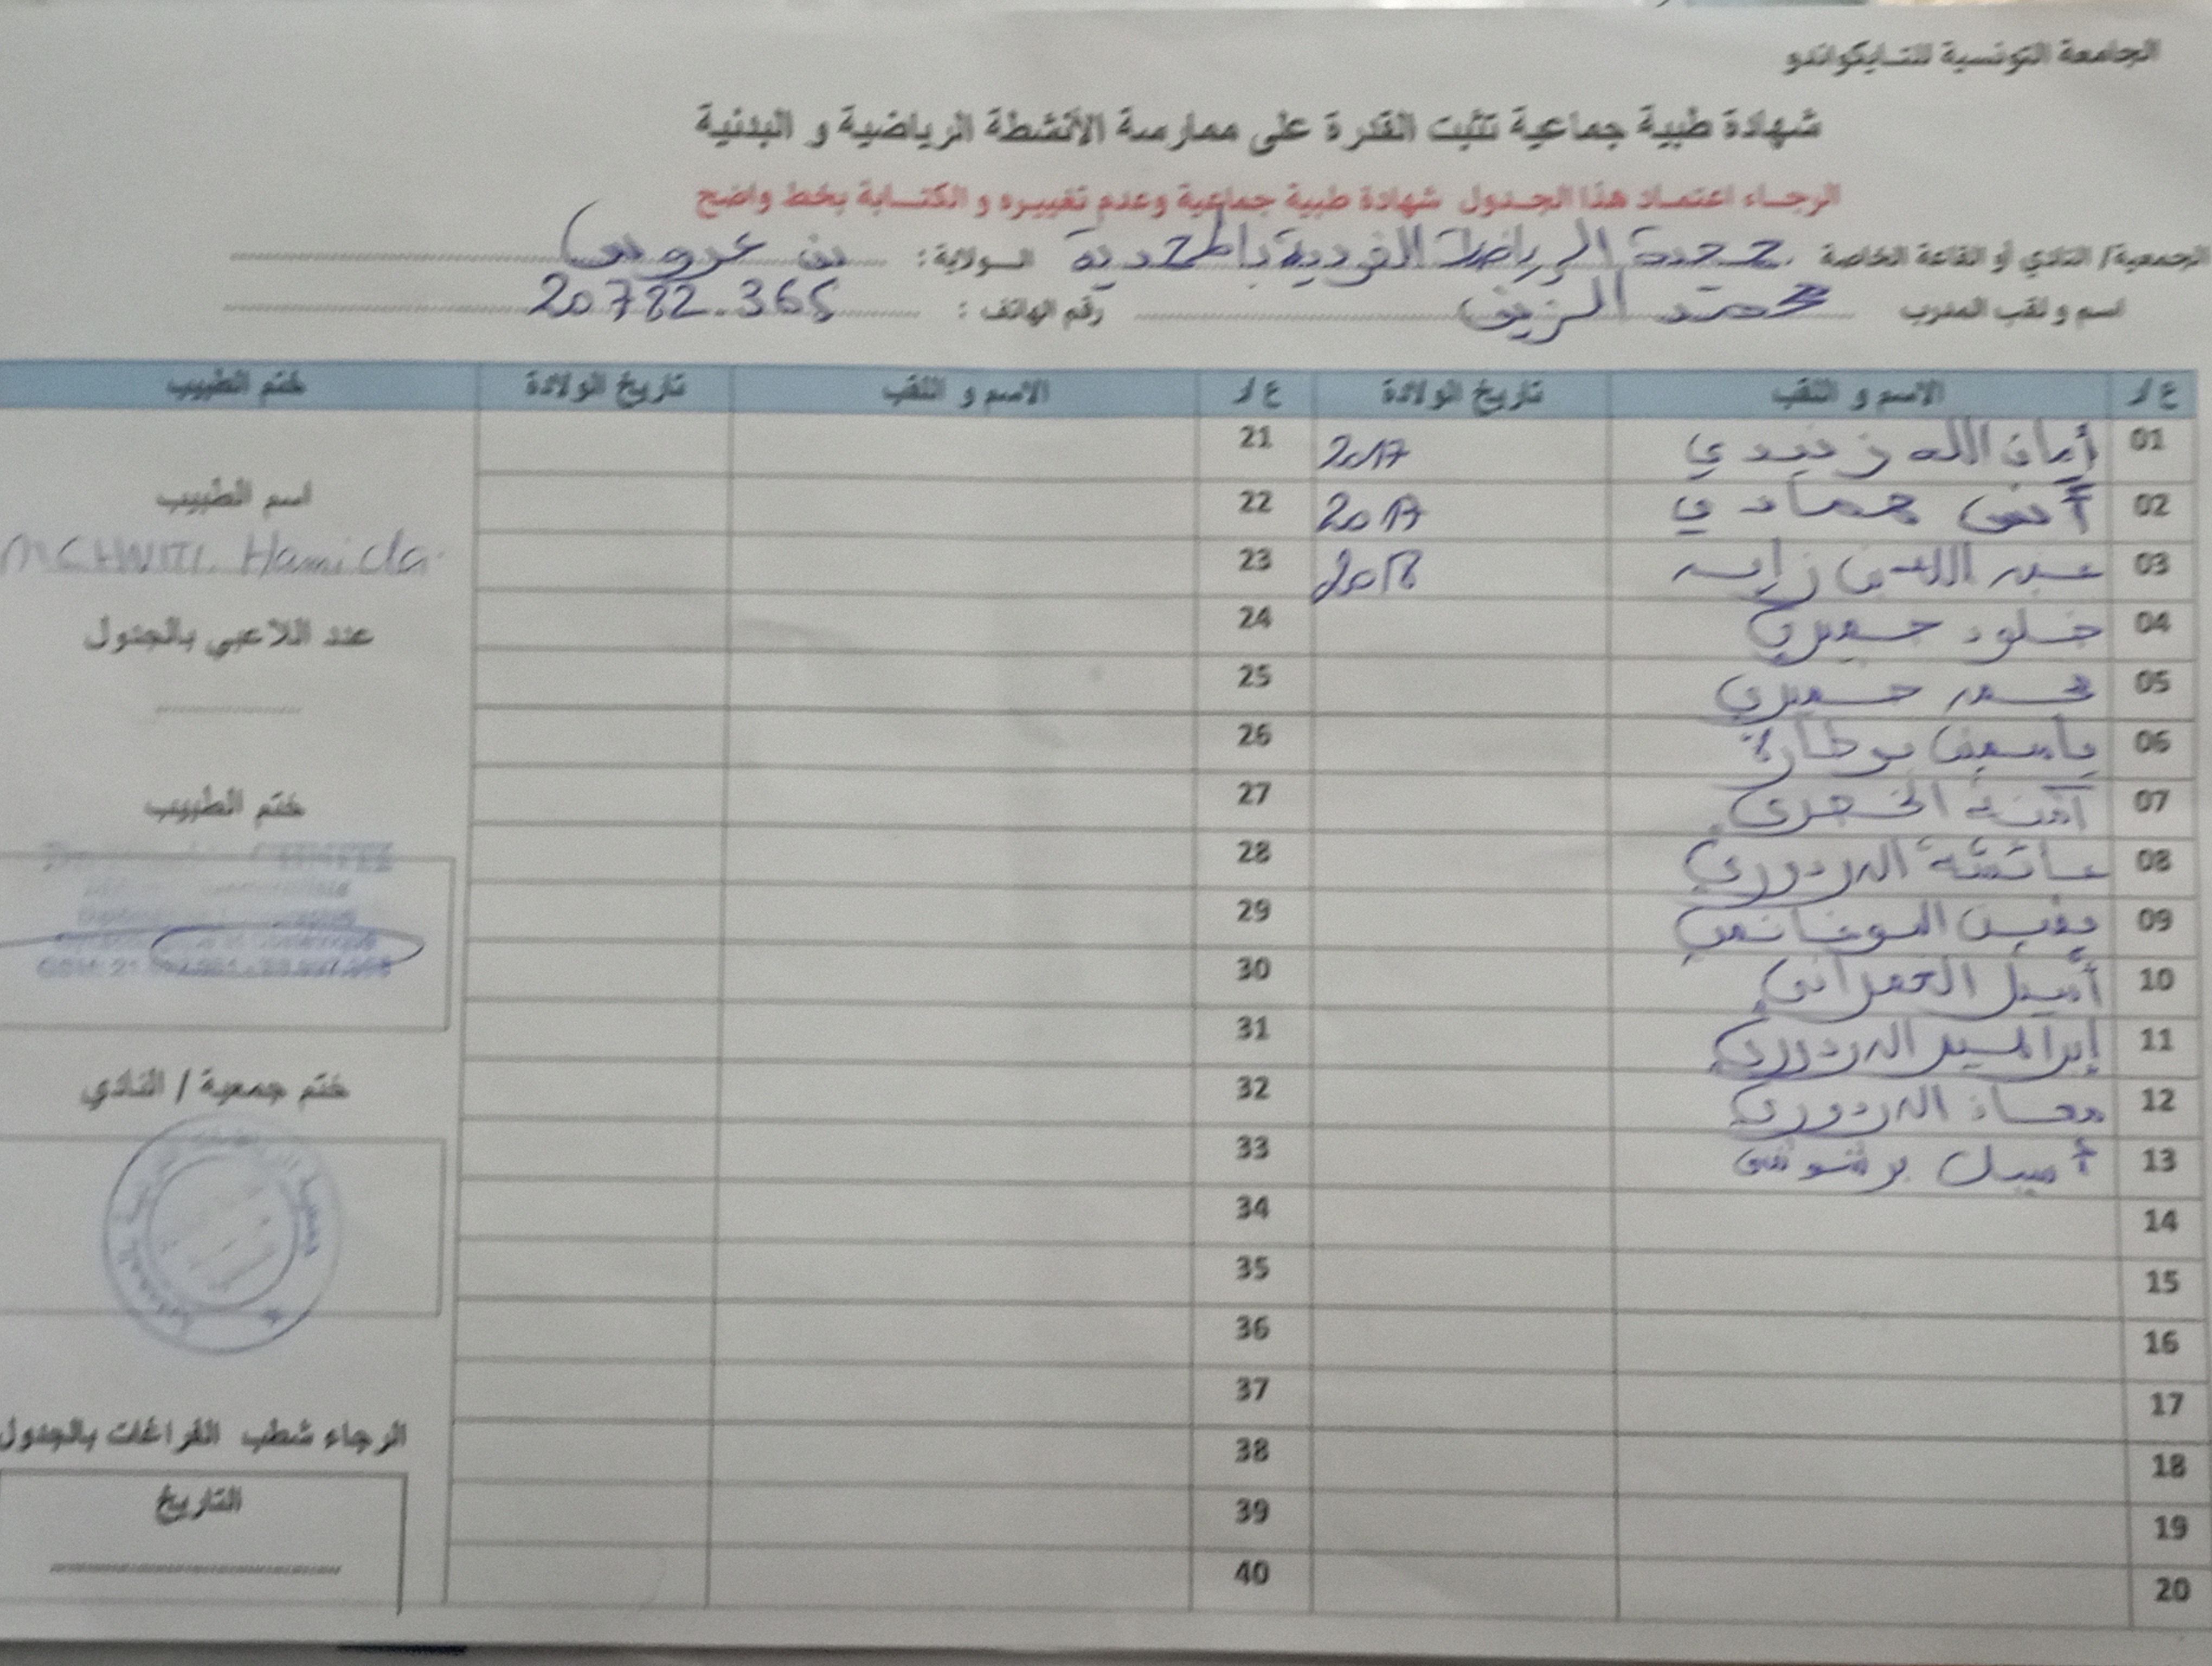 الجامعة التونسية للتـايكواندو
شهادة طبية جماعية تثبت القدرة على ممارسة الأنشطة الرياضية و البدنية
الرجـاء اعتمـاد هذا الجـدول شهادة طبية جماعية وعدم تغييره و الكتـابة بخط واضح
الجمعية/ النادي أو القاعة الخاصة جمعية الرياضة الفردية بالمحمدية الـولاية : بن عروس
اسم و لقب المدرب محمد الزين رقم الهاتف : 20782.365
ع/ر الاسم و اللقب تاريخ الولادة ع/ر الاسم و اللقب تاريخ الولادة ختم الطبيب
01 أمان الله زنيدي 2017 21
02 أنس حمادي 2017 22
03 عبد الله بن زايد 2018 23
04 خلود حميدي 24
05 محمد حميدي 25
06 ياسمين بوطارة 26
07 آمنة 27
08 عائشة الدردوري 28
09 29
10 أسيل العمراني 30
11 إبراهيم الدردوري 31
12 معاذ الدردوري 32
13 أسيل برشوش 33
14 34
15 35
16 36
17 37
18 38
19 39
20 40
اسم الطبيب
Hamida
عدد اللاعبي بالجدول
ختم الطبيب
ختم جمعية / النادي
الرجاء شطب الفراغات بالجدول
التاريخ